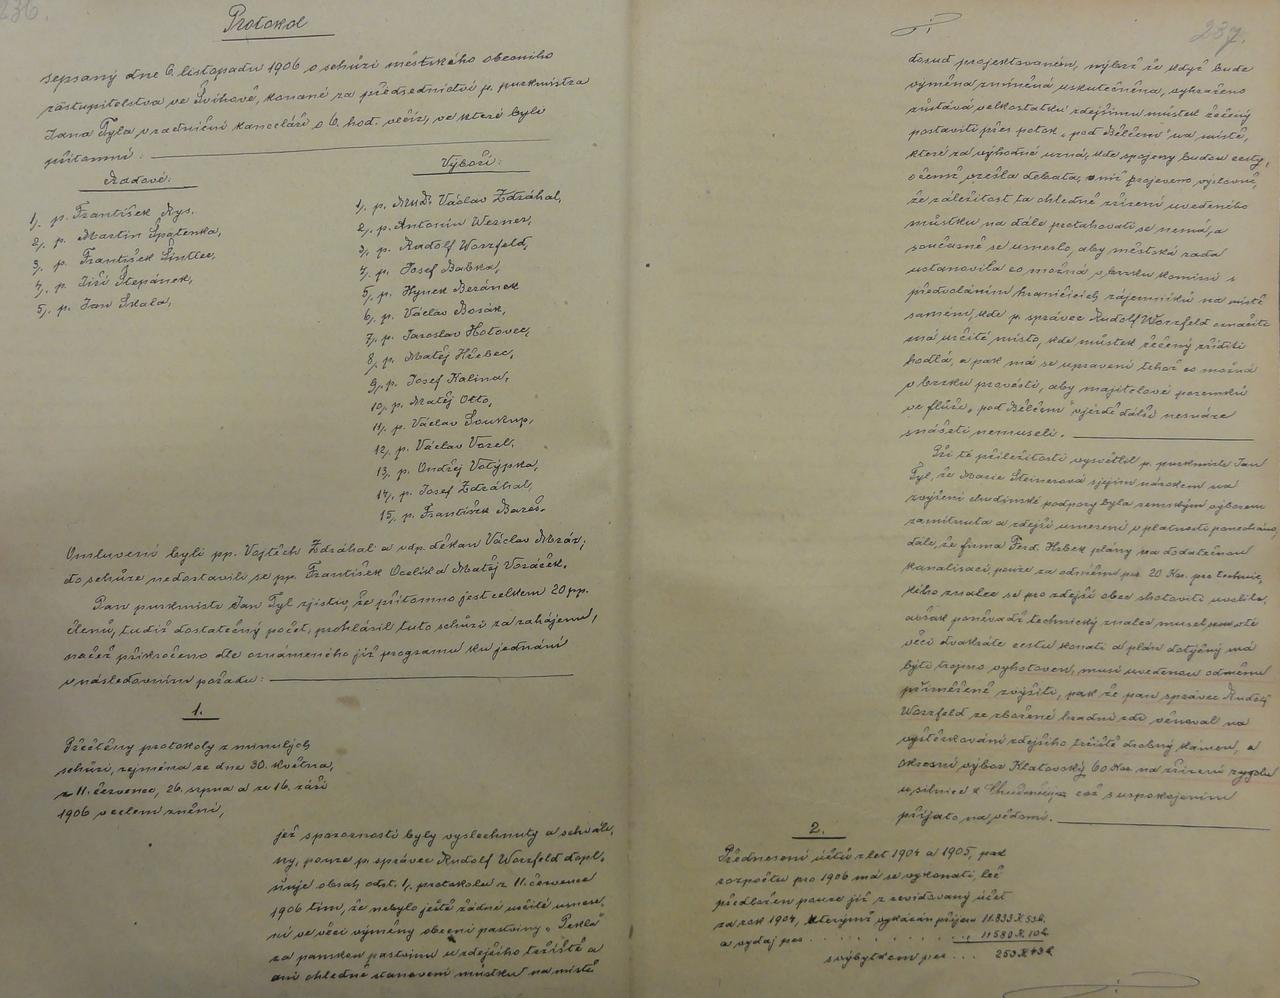 236.
Protokol
sepsaný dne 6. listopadu 1906 o schůzi městského obecního
zastupitelstva ve Švihově, konané za předsednictví p. purkmistra
Jana Tyla v radniční kanceláři o 6. hod. večír, ve které byli
přítomni:
Radové:
1). p. František Rys.
2). p. Martin Špatenka,
3). p. František Šintler,
4). p. Jiří Štepánek,
5). p. Jan Skala,
Výboři:
1). p. MUDr. Václav Zdráhal,
2). p. Antonín Werner,
3). p. Rudolf Worzfeld,
4). p. Josef Babka,
5). p. Hynek Beránek
6). p. Václav Bosák,
7). p. Jaroslav Hotovec,
8). p. Matěj Hřebec,
9). p. Josef Kalina,
10). p. Matěj Otto,
11). p. Václav Soukup,
12). p. Václav Vozel,
13). p. Ondřej Votýpka,
14). p. Josef Zdráhal,
15). p. František Bareš.
Omluveni byli pp. Vojtěch Zdráhal a vdp. děkan Václav Mráz;
do schůze nedostavili se pp. František Ocelík a Matěj Voráček.
Pan purkmistr Jan Tyl zjistiv, že přítomno jest celkem 20 pp.
členů, tudíž dostatečný počet, prohlásil tuto schůzi za zahájenu,
načež přikročeno dle oznámeného již programu ku jednání
v následovním pořadu:
1.
Přečteny protokoly z minulých
schůzí, zejména ze dne 30. května,
z 11. července, 26. srpna a ze 16. září
1906 v celém znění,
jež s pozorností byly vyslechnuty a schvále-
ny, pouze p. správec Rudolf Worzfeld dopl-
ňuje obsah odst. 1). protokolu z 11. července
1906 tím, že nebylo ještě žádné určité usnese-
ní ve věci výměny obecní pastviny „Peklo“
za panskou pastvinu u zdejšího tržiště a
ani ohledně stanovení můstku na místě
237.
dosud projektovaném, nýbrž že když bude
výměna zmíněná uskutečněna, vyhraženo
zůstává velkostatku zdejšímu můstek řečený
postaviti přes potok „pod Bělčem“ na místě,
které za výhodné uzná, kde spojeny budou cesty,
o čemž vzešla debata, z níž projeveno výslovně,
že záležitost ta ohledně zřízení uvedeného
můstku na dále protahovati se nemá, a
současně se usneslo, aby městská rada
ustanovila co možná v brzku komisi s
předvoláním hraničících zájemníků na místě
samém, kde p. správec Rudolf Worzfeld označiti
má určité místo, kde můstek řečený zříditi
hodlá, a pak má se upravení tohož co možná
v brzku provésti, aby majitelové pozemků
ve fluře „pod Bělčem“ v jízdě další nesnáze
snášeti nemuseli.
Při té příležitosti vysvětlil p. purkmistr Jan
Tyl, že Marie Steinerová s jejím nárokem na
zvýšení chudinské podpory byla zemským výborem
zamítnuta a zdejší usnesení v platnosti ponecháno,
dále, že firma Ferd. Hrbek plány na dodatečnou
kanalisaci pouze za odměnu per 20 Kor. pro technic-
kého znalce se pro zdejší obec shotoviti uvolila,
avšak poněvadž technický znalec musel v té
věci dvakráte cestu konati a plán dotyčný má
býti trojmo vyhotoven, musí uvedenou odměnu
přiměřeně zvýšiti, pak že pan správec Rudolf
Worzfeld ze zbořené hradní zdi věnoval na
vyštěrkování zdejšího tržiště drobný kámen, a
okresní výbor Klatovský 60 Kor. na zřízení
u silnice k Chudenicům, což s uspokojením
přijato na vědomí.
2.
Přednesení účtů z let 1904 a 1905, pak
rozpočtu pro 1906 má se vykonati, leč
předložen pouze již z revidovaný účet
za rok 1904, kterýmž vykázán příjem 11.833 K 53 h.
a vydaj per . . . . . . . . . 11580 K 10 h
s výbytkem per . . . 253 K 43 h